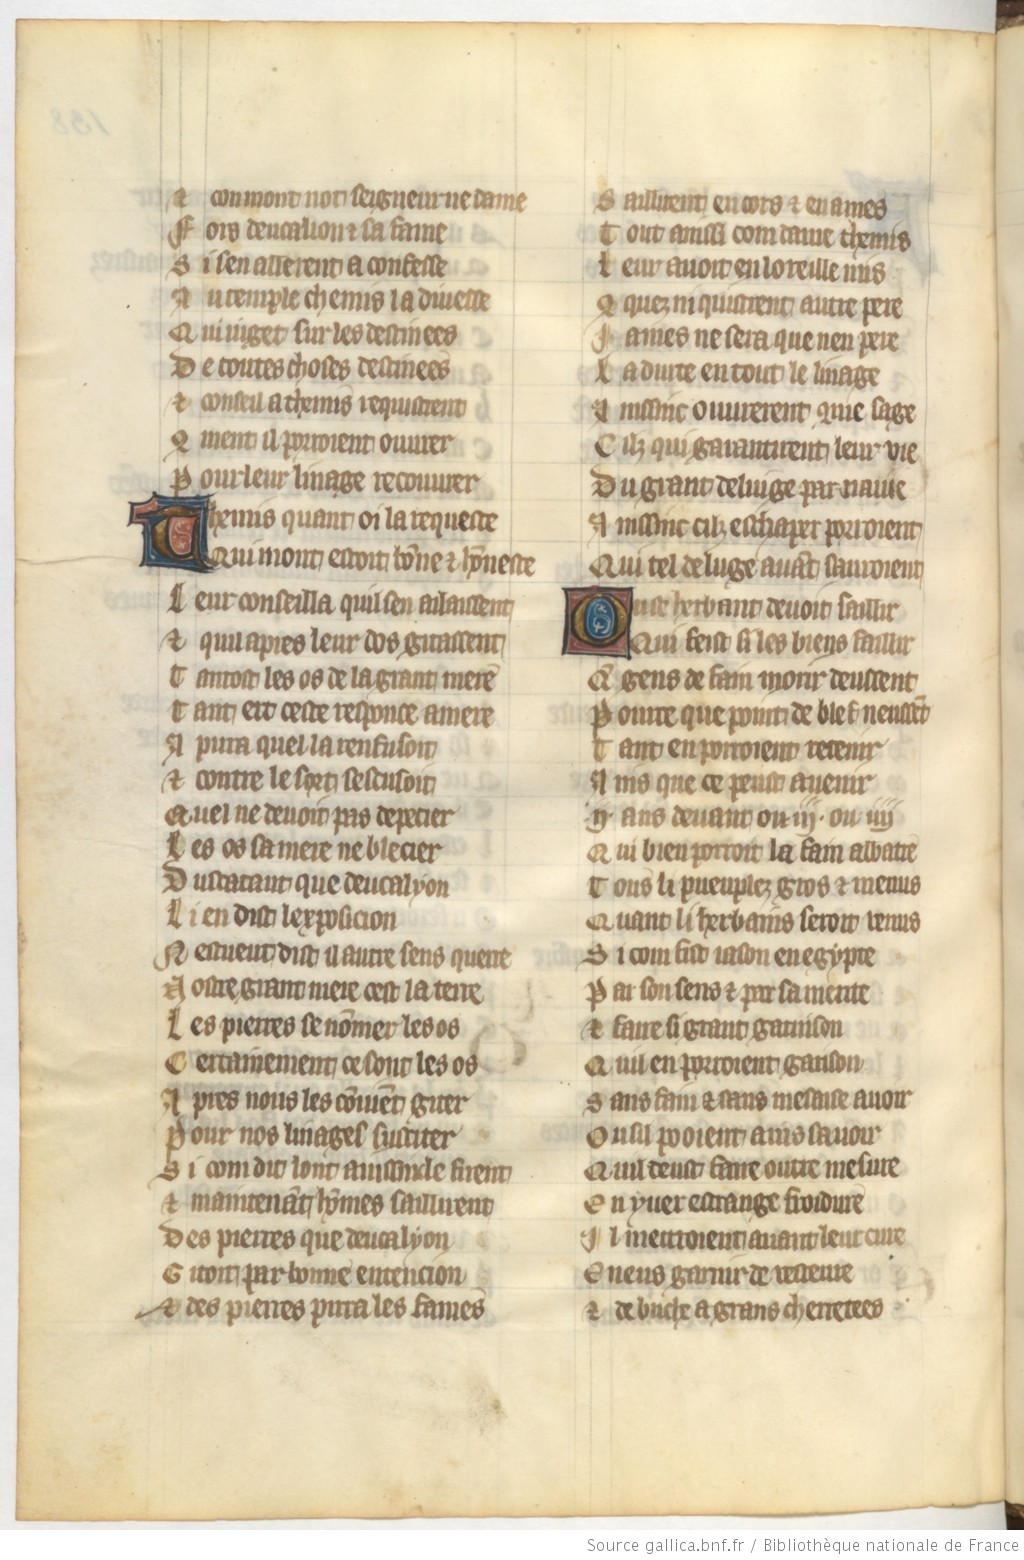 A conmont not seigneur ne dame
Fors deucalion & sa fame
Si sen allerent a confesse
Au temple themis la diuesse
Qui iuget sur les destinees
De toutes choses destinees
& conseil a themis requistrent
9ment il porroient ouurer
Pour leur linage recouurer
Themis quant oi la requeste
Qui mont estoit bõne & hõneste
Leur conseilla quil sen alaissent
& quil apres leur dos gitassent
Tantost les os de la grant mere
Tant ert ceste responce amere
A pirra quel la renfusoit
& contre le sort sescusoit
Quel ne deuoit pas depecier
Les os sa mere ne blecier
Dusatant que deucalyon
Li en dist lexposicion
Nestuent dist il autre sens querre
Nostre grant mere cest la terre
Les pierres se nõmer les os
Certainement ce sont les os
Apres nous les cõuiẽt giter
Pour nos linages susciter
Si com dit lont ainssinc le firent
& maintenãt hõmes saillirent
Des pierres que deucalyon
Gitoit par bonne entencion
& des pierres pirra les fames
Saillirent en cors & en ames
Tout ainssi com dame themis
Leur auoit en loreille mis
9quez ni quistrent autre pere
James ne sera que nen pere
La durte en tout le linage
Ainssinc ouurerent 9me sage
Cilz qui garantirent leur vie
Du grant deluige par nauie
Ainssinc cilz eschaper porroient
Qui tel deluge auãt sauroient
Ou se herbant deuoit faillir
Qui feist si les biens faillir
Q̃ gens de fain morir deussent
Pource que point de blef neussẽt
Tant en porroient retenir
Ains que ce peust auenir
.ij. ans deuant ou .iij. ou .iiij
Qui bien porroit la fain abatre
Tous li pueuplez gros & menus
Quant li herbains seroit venus
Si com fist iason en egypte
Par son sens & par sa merite
& faire si grant garnison
Quil en porroient garison
Sans fain & sans mesaise auoir
Ou sil pooient ains sauoir
Quil deust faire outre mesure
En yuer estrange froidure
Il mettroient auant leur cure
En eus garnir de vesteure
& de buche a grans cherretees
Source gallica.bnf.fr / Bibliothèque nationale de France